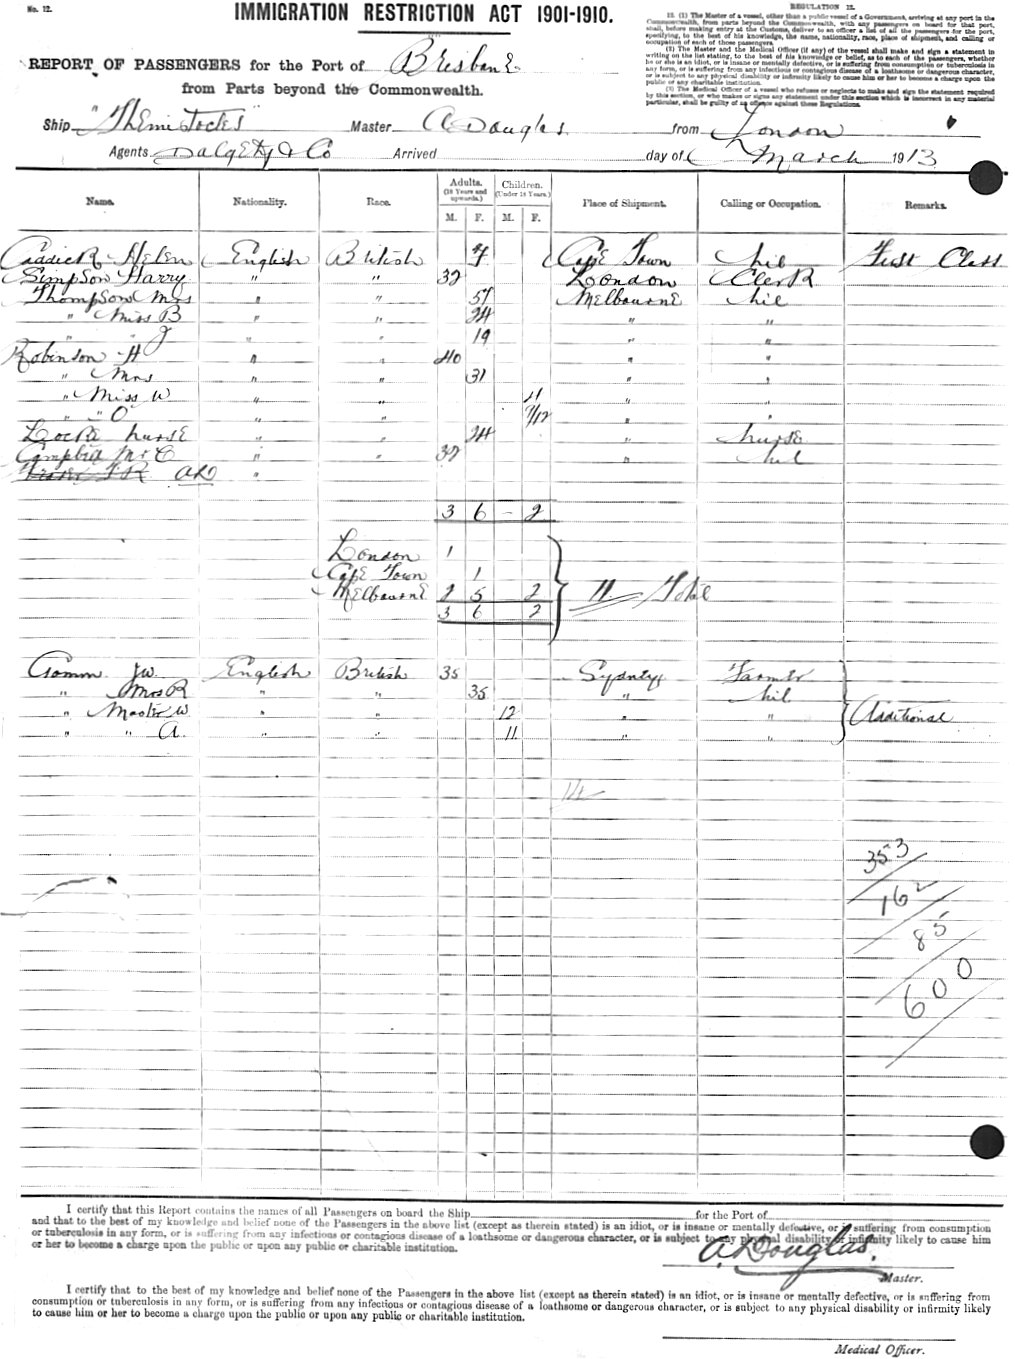 No. 12.
IMMIGRATION RESTRICTION ACT 1901-1910.
REPORT OF PASSENGERS for the Port of Brisbane
from Parts beyond the Commonwealth.
REGULATION 12.
12. (1) The Master of a vessel, other than a public vessel of a Government, arriving at any port in the
Commonwealth, from parts beyond the Commonwealth, with any passengers on board for that port,
shall, before making entry at the Customs, deliver to an officer a list of all the passengers for the port,
specifying, to the best of his knowledge, the name, nationality, race, place of shipment, and calling or
occupation of each of those passengers.
(2) The Master and the Medical Officer (if any) of the vessel shall make and sign a statement in
writing on the list stating, to the best of his knowledge or belief, as to each of the passengers, whether
he or she is an idiot, or is insane or mentally defective, or is suffering from consumption or tuberculosis in
any form, or is suffering from any infectious or contagious disease of a loathsome or dangerous character,
or is subject to any physical disability or infirmity likely to cause him or her to become a charge upon the
public or of any charitable institution.
(3) The Medical Officer of a vessel who refuses or neglects to make and sign the statement required
by this section, or who makes or signs any statement under this section which is incorrect in any material
particular, shall be guilty of an offence against these Regulations.
Ship "Themistocles" Master A Douglas from London
Agents Dalgety & Co Arrived day of March 1913
Name. Nationality. Race. Adults. (18 Years and upwards.) Children. (Under 18 Years.) Place of Shipment. Calling or Occupation. Remarks.
M. F. M. F.
Caddick Helen English British Cape Town nil First Class
Simpson Harry " " 32 London Clerk
Thompson Mrs " " 51 Melbourne nil
" Miss B " " 24 " "
" " J " " 19 " "
Robinson H " " 40 " "
" Mrs " " 31 " "
" Miss W " " 11 " "
" " O " " 9/12 " "
Locke nurse " " 24 " nurse
Campbell Mr C " " 32 " nil
3 6 - 2
London 1
Cape Town 1
Melbourne 2 5 2 11 Total
3 6 2
Gomm JW English British 35 Sydney Farmer
" Mrs R " " 35 " nil
" Master W " " 12 " " Additional
" " A. " " 11 " "
353
162
85
600
I certify that this Report contains the names of all Passengers on board the Ship for the Port of
and that to the best of my knowledge and belief none of the Passengers in the above list (except as therein stated) is an idiot, or is insane or mentally defective, or is suffering from consumption
or tuberculosis in any form, or is suffering from any infectious or contagious disease of a loathsome or dangerous character, or is subject to any physical disability or infirmity likely to cause him
or her to become a charge upon the public or upon any public or charitable institution.
A. Douglas.
Master.
I certify that to the best of my knowledge and belief none of the Passengers in the above list (except as therein stated) is an idiot, or is insane or mentally defective, or is suffering from
consumption or tuberculosis in any form, or is suffering from any infectious or contagious disease of a loathsome or dangerous character, or is subject to any physical disability or infirmity likely
to cause him or her to become a charge upon the public or upon any public or charitable institution.
Medical Officer.